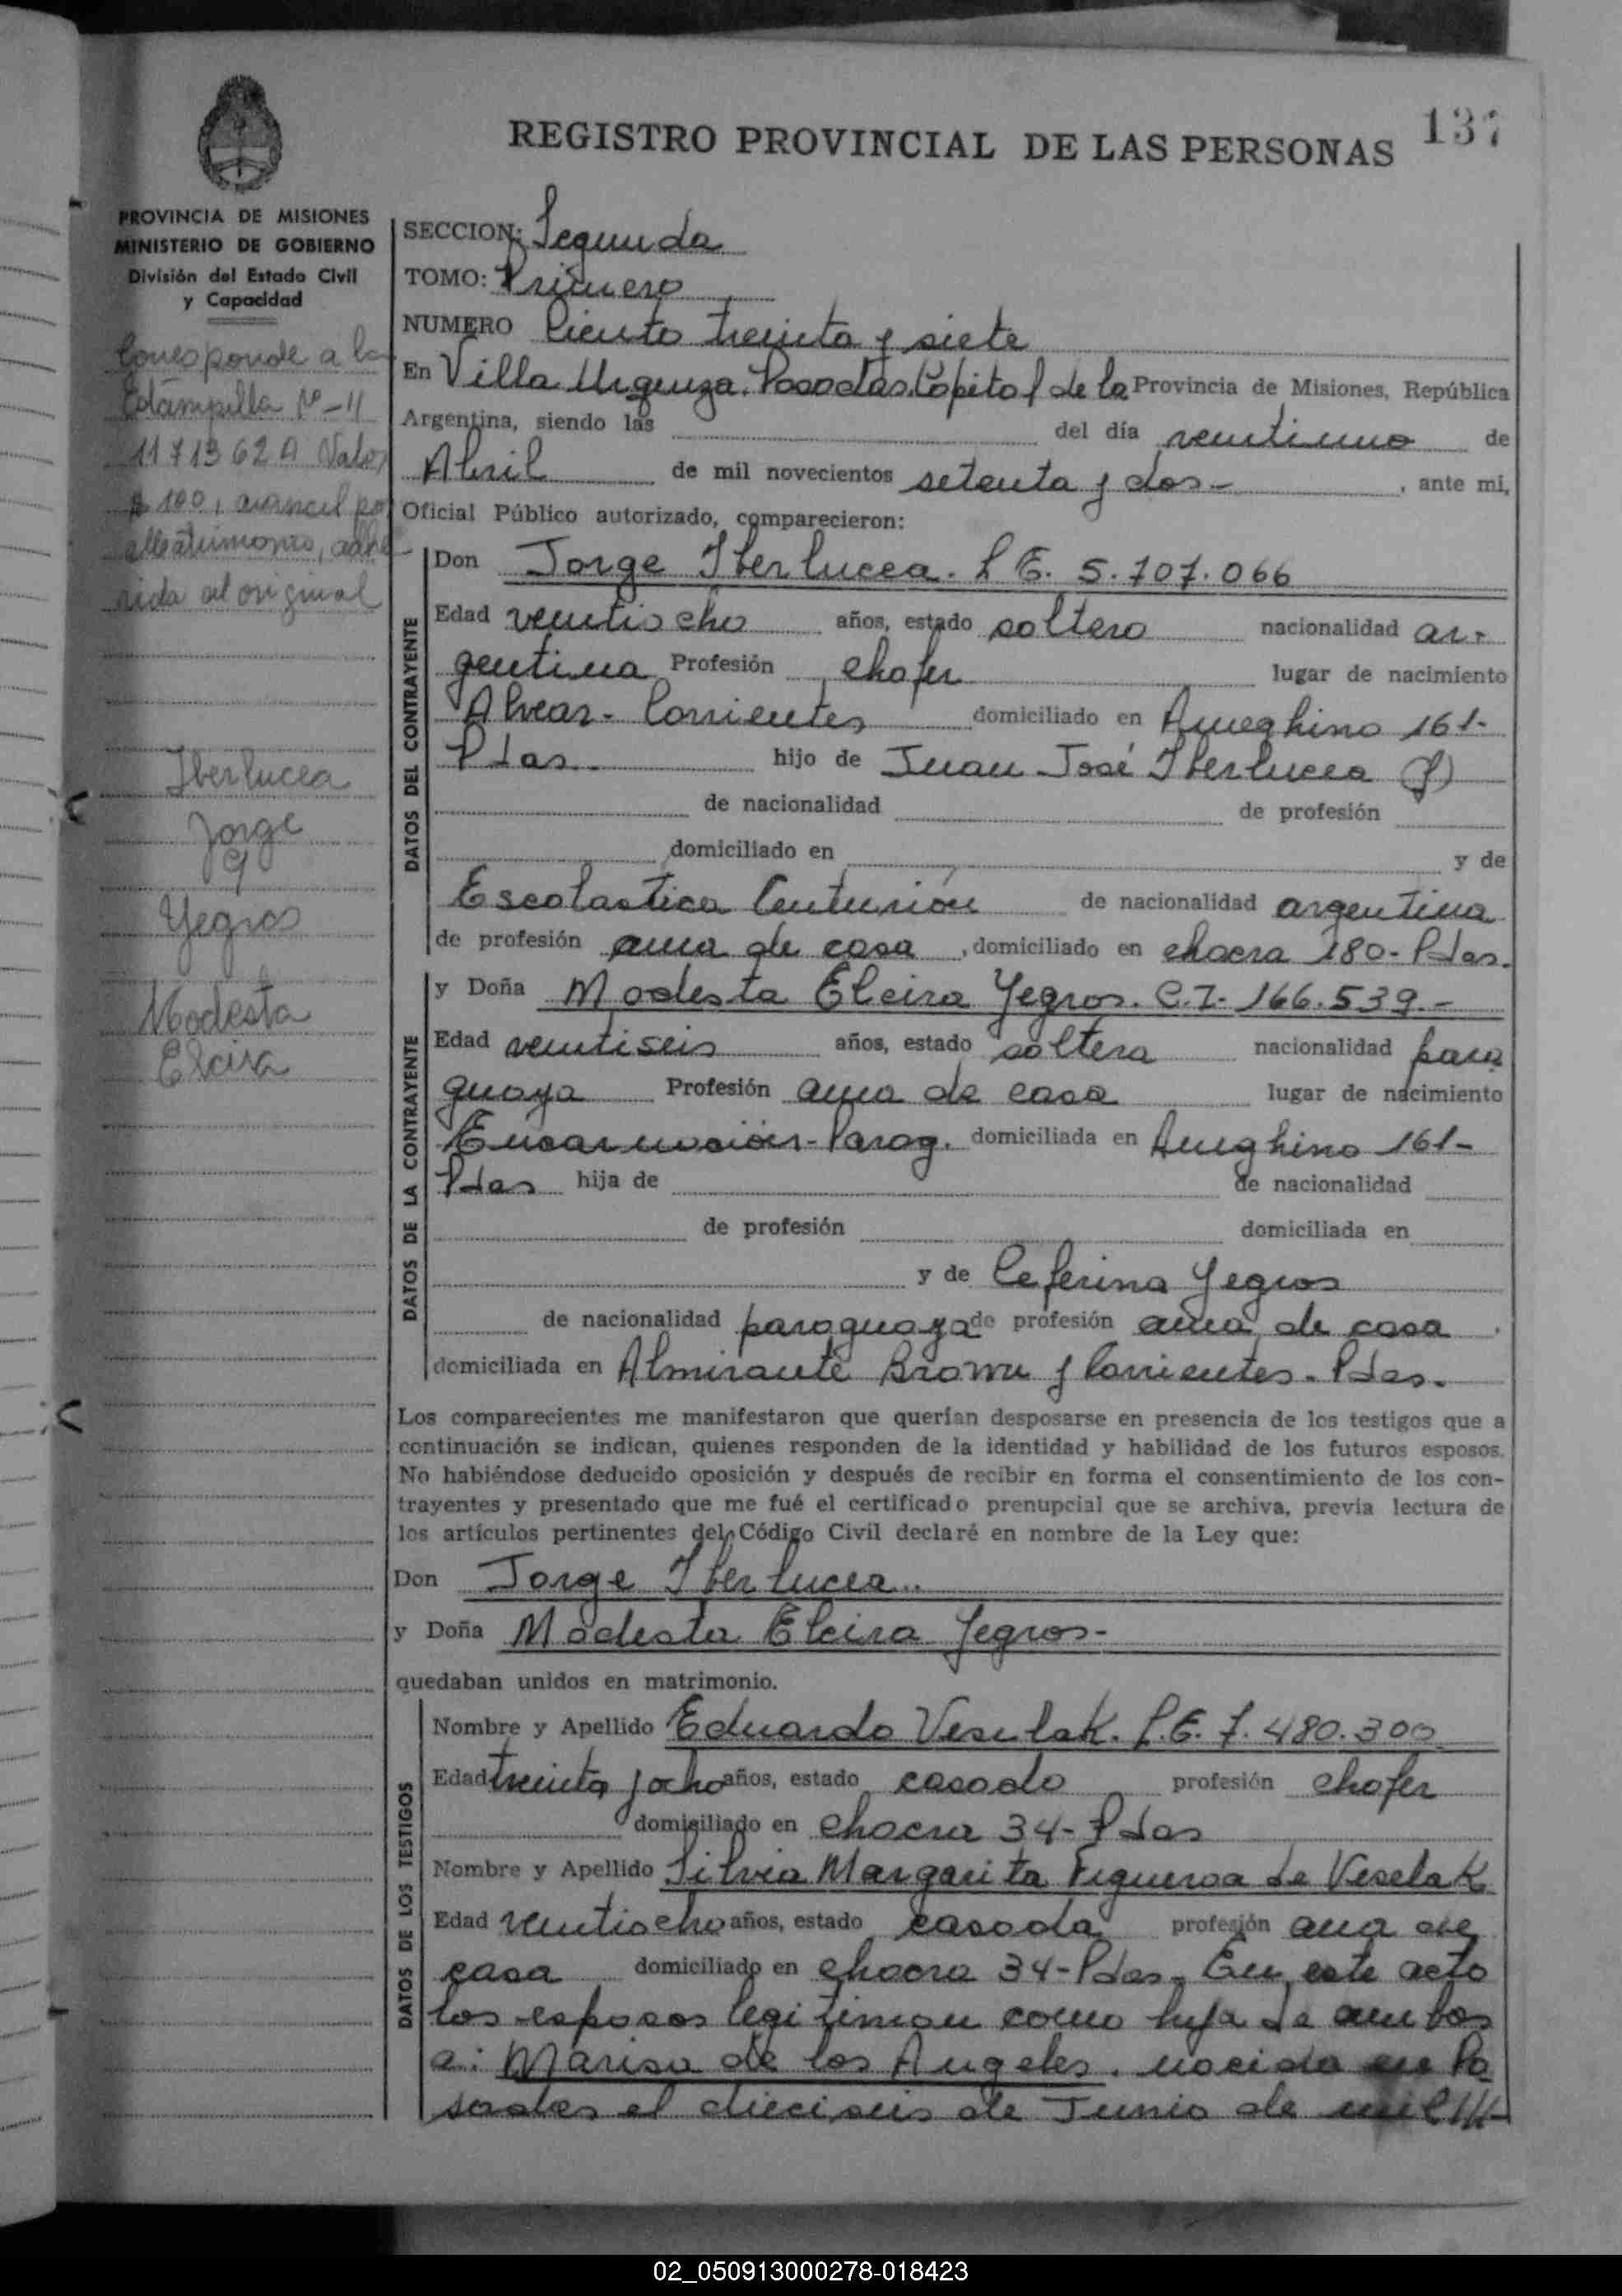 REGISTRO PROVINCIAL DE LAS PERSONAS
137
PROVINCIA DE MISIONES
MINISTERIO DE GOBIERNO
División del Estado Civil
y Capacidad
Corresponde a la
Estampilla Nº-11
1171362A Valor
$ 100, arancel por
Matrimonio, adhe
rida al original
Iberlucea
Jorge
y
Yegros
Modesta
Elcira
SECCION: Segunda
TOMO: Primero
NUMERO Ciento treinta y siete
En Villa Urquiza. Posadas Capital de la Provincia de Misiones, República
Argentina, siendo las del día veintiuno de
Abril de mil novecientos setenta y dos- , ante mi,
Oficial Público autorizado, comparecieron:
DATOS DEL CONTRAYENTE
Don Jorge Iberlucea. L E. 5.707.066
Edad veintiocho años, estado soltero nacionalidad ar-
gentina Profesión chofer lugar de nacimiento
Alvear- Corrientes domiciliado en Ameghino 161-
Pdas. hijo de Juan José Iberlucea (f)
de nacionalidad de profesión
domiciliado en y de
Escolastica Centurión de nacionalidad argentina
de profesión ama de casa , domiciliado en chacra 180- Pdas.
DATOS DE LA CONTRAYENTE
y Doña Modesta Elcira Yegros. C.I- 166.539.-
Edad veintiseis años, estado soltera nacionalidad para
guaya Profesión ama de casa lugar de nacimiento
Encarnación-Parag. domiciliada en Ameghino 161-
Pdas hija de de nacionalidad
de profesión domiciliada en
y de Ceferina Yegros
de nacionalidad paraguaya de profesión ama de casa .
domiciliada en Almirante Brown y Corrientes. Pdas.
Los comparecientes me manifestaron que querían desposarse en presencia de los testigos que a
continuación se indican, quienes responden de la identidad y habilidad de los futuros esposos.
No habiéndose deducido oposición y después de recibir en forma el consentimiento de los con-
trayentes y presentado que me fué el certificado prenupcial que se archiva, previa lectura de
los artículos pertinentes del Código Civil declaré en nombre de la Ley que:
Don Jorge Iberlucea..
y Doña Modesta Elcira Yegros-
quedaban unidos en matrimonio.
DATOS DE LOS TESTIGOS
Nombre y Apellido Eduardo Veselak. L.E. 7.480.300
Edad treinta y ocho años, estado casado profesión chofer
domiciliado en chacra 34- Pdas
Nombre y Apellido Silvia Margarita Figueroa de Veselak
Edad veintiocho años, estado casada profesión ama de
casa domiciliado en chacra 34-Pdas- En este acto
los esposos legitiman como hija de ambos
a: Marisa de los Angeles. nacida en Po
sadas el dieciseis de Junio de mil
02_050913000278-018423